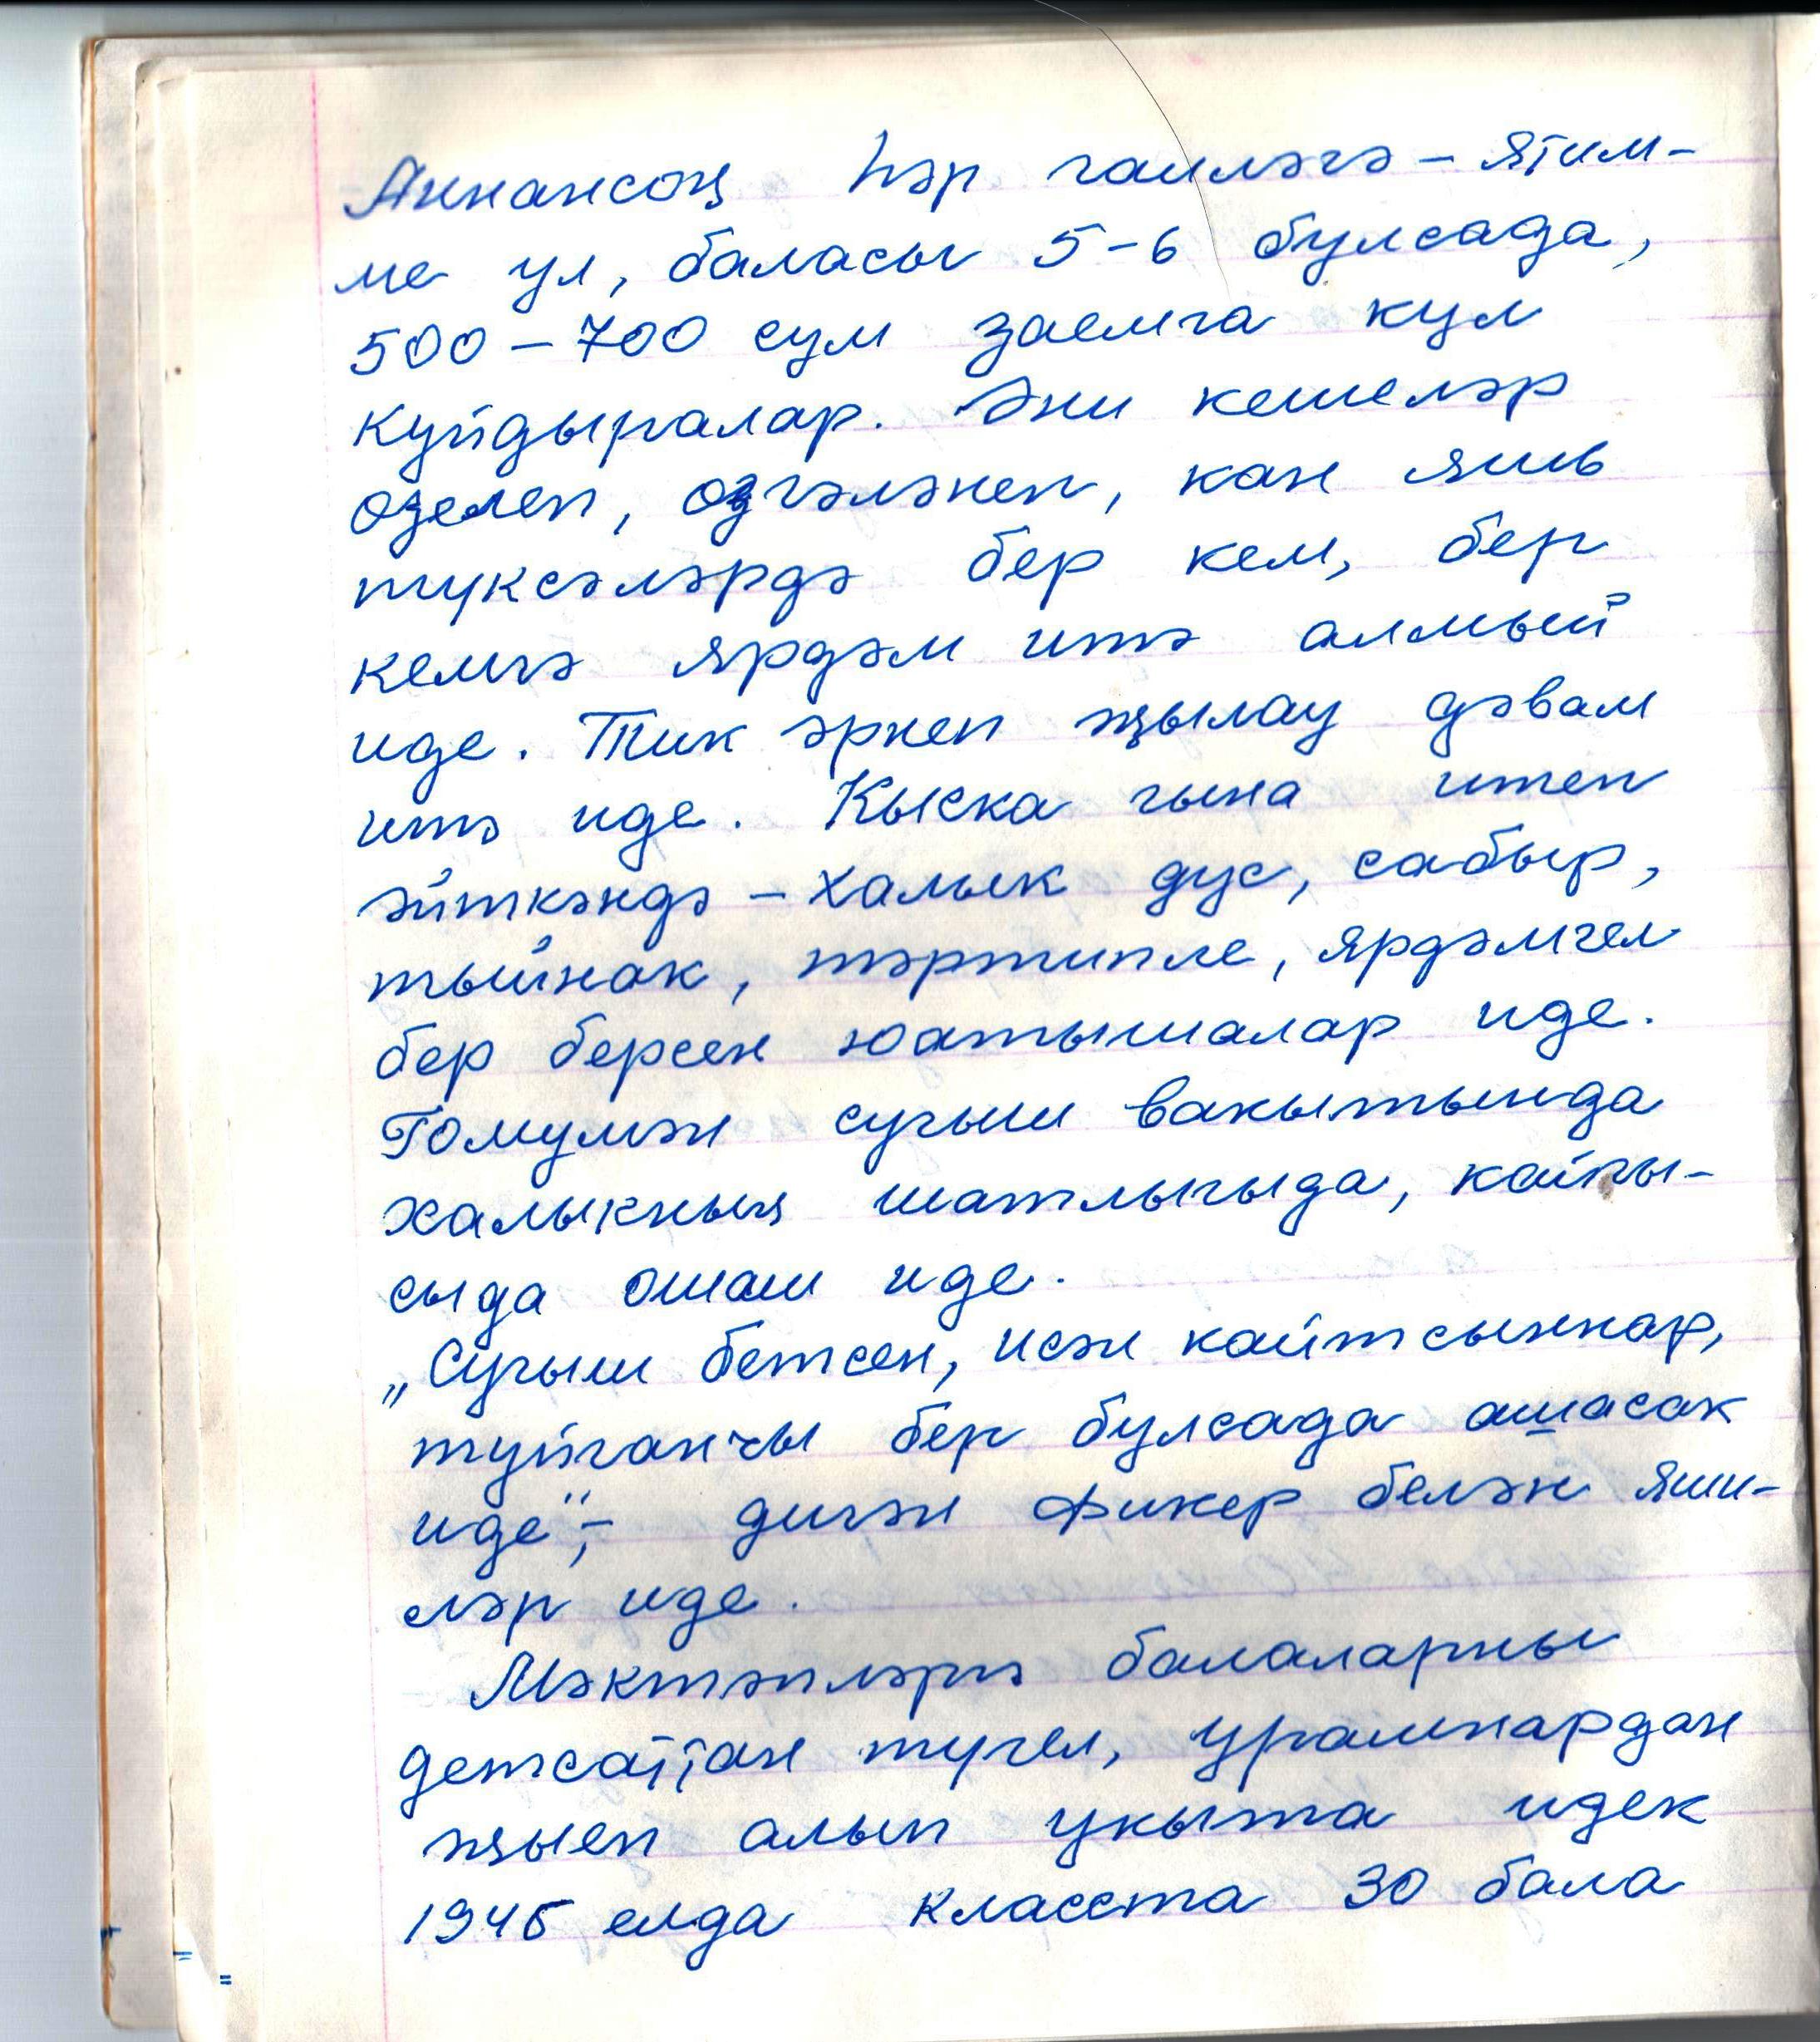 Аннансоң һәр гаиләгә – Ятим-
ме ул, баласы 5-6 булсада,
500 – 700 сум заемга кул
куйдыралар. Әни кешеләр
озелеп, озгәләнеп, кан яшь
түксәләрдә бер кем, бер
кемгә ярдәм итә алмый
иде. Тик әрнеп җылау дәвам
итә иде. Кыска гына итеп
әйткәндә – Халык дус, сабыр,
тыйнак, тәртипле, ярдәмчел
бер берсен юатышалар иде.
Гомумән сугыш вакытында
халыкның шатлыгыда, кайгы-
сыда ошаш иде.
„Сугыш бетсен, исән кайтсыннар,
туйганчы бер булсада ашасак
иде“, – дигән фикер белән яши-
ләр иде.
Мәктәпләргә балаларны
детсаттан түгел, урамнардан
җыеп алып укыта идек
1945 елда класста 30 бала